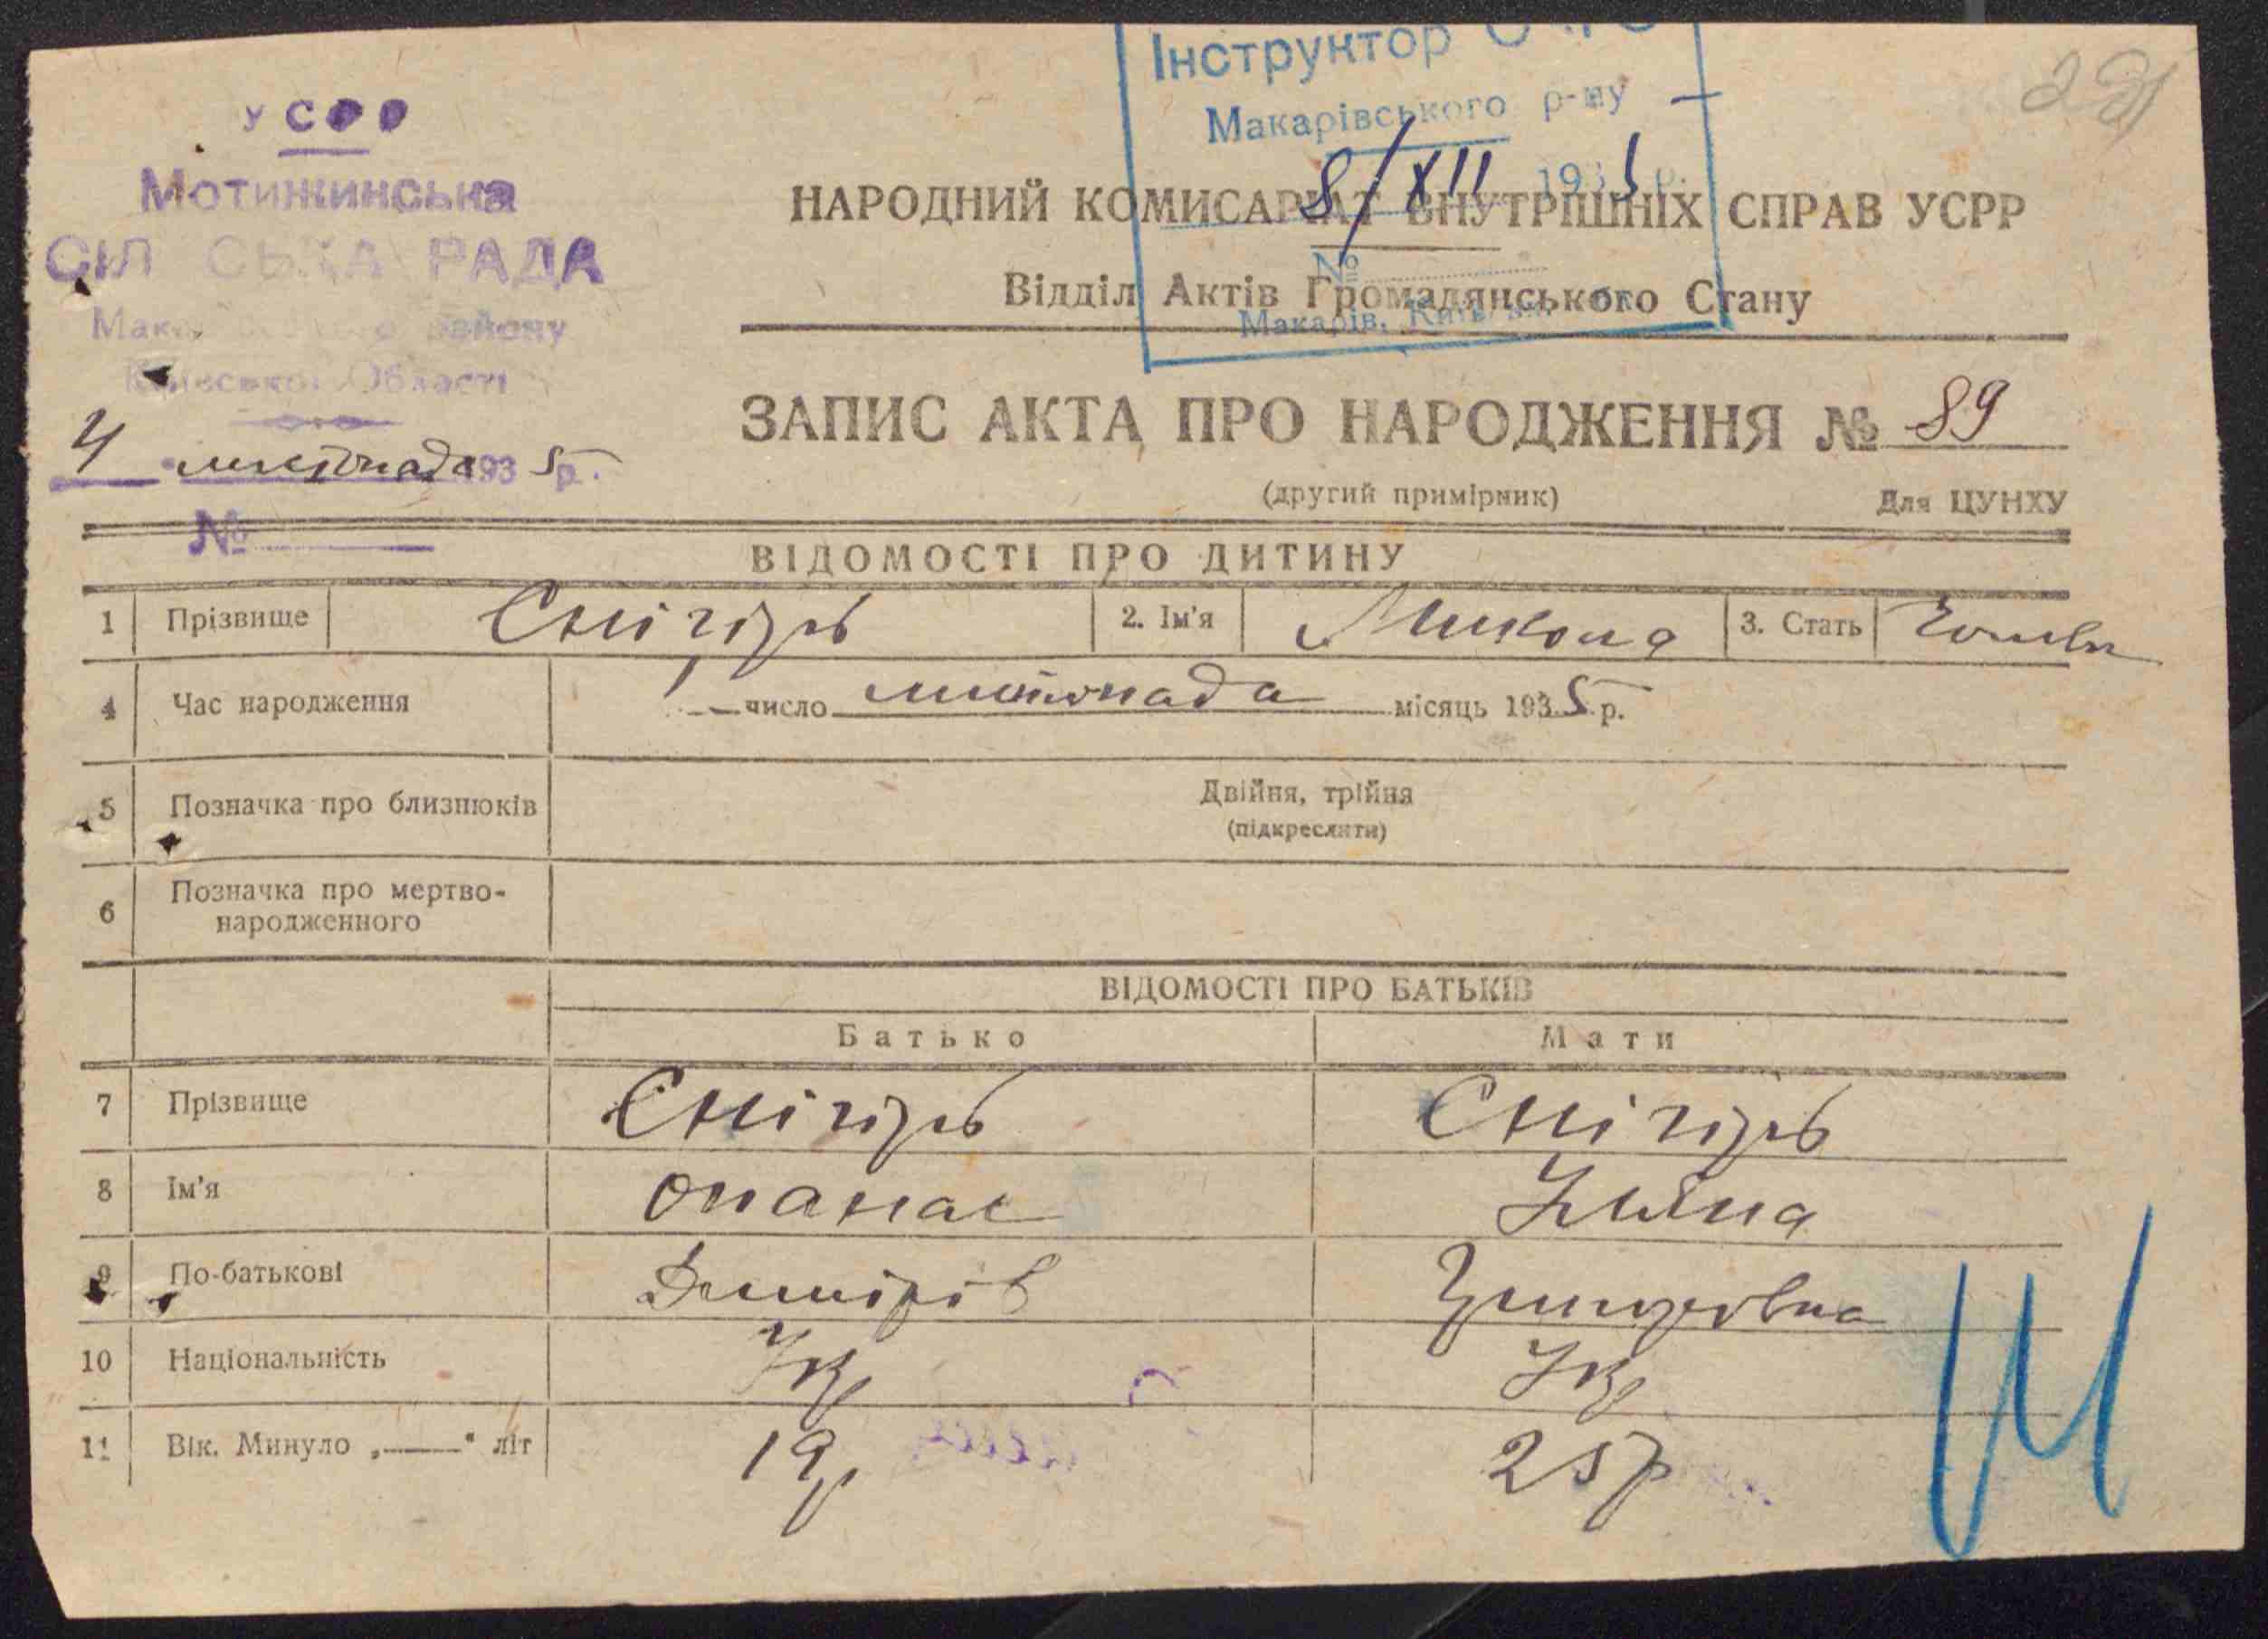 УСРР
Мотижинська
СІЛЬСЬКА РАДА
Макарівського району
Київської Області
4 листопада 1935 р.
№
Інструктор
Макарівського р-ну
8/XII 1935 р.
№
Макарів, Київ.
НАРОДНИЙ КОМИСАРІАТ ВНУТРІШНІХ СПРАВ УСРР
Відділ Актів Громадянського Стану
ЗАПИС АКТА ПРО НАРОДЖЕННЯ № 89
(другий примірник) Для ЦУНХУ
ВІДОМОСТІ ПРО ДИТИНУ
1 Прізвище Снігірь 2. Ім'я Микола 3. Стать
4 Час народження 1 число листопада місяць 1935 р.
5 Позначка про близнюків Двійня, трійня
(підкреслити)
6 Позначка про мертво-
народженного
ВІДОМОСТІ ПРО БАТЬКІВ
Батько Мати
7 Прізвище Снігірь Снігірь
8 Ім'я Опанас Уляна
9 По-батькові Дмитрів Григоровна
10 Національність Укр Укр
11 Вік. Минуло „——“ літ 19р 25р